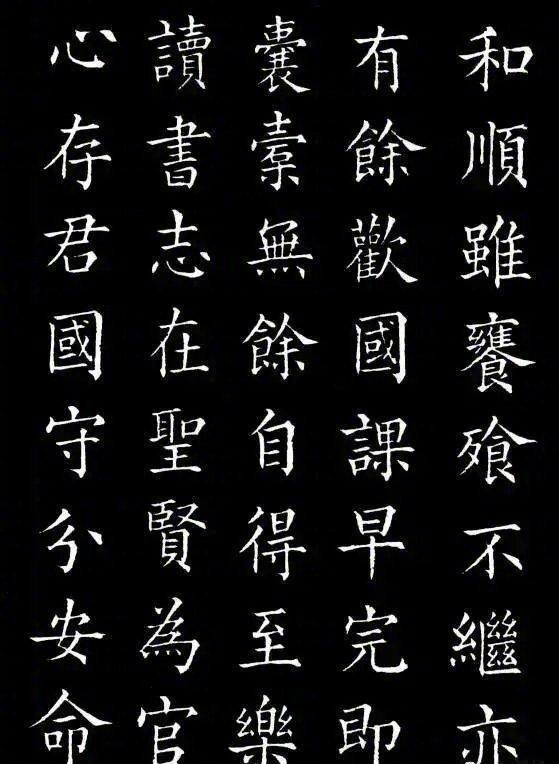 和順雖饔飱不繼亦
有餘歡國課早完即
囊橐無餘自得至樂
讀書志在聖賢為官
心存君國守分安命